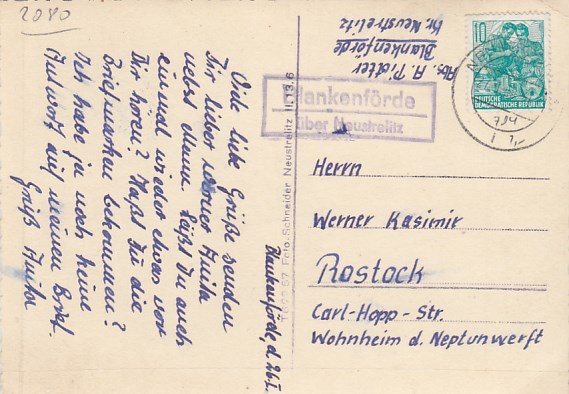 2080
Viele liebe Grüße senden
Dir lieber Werner Anita
nebst Mann. Läßt Du auch
einmal wieder etwas von
Dir hören? Hast Du die
Briefmarken bekommen?
Ich habe ja noch keine
Antwort auf meinen Brief.
Gruß Anita
Blankenförde, d. 26.I.
Foto. Schneider Neustrelitz II.13.6
Abs. A.
Blankenförde
Kr. Neustrelitz
Blankenförde
über Neustrelitz
10
DEUTSCHE
DEMOKRATISCHE REPUBLIK
Herrn
Werner Kasimir
Rostock
Carl-Hopp-Str.
Wohnheim d. Neptunwerft